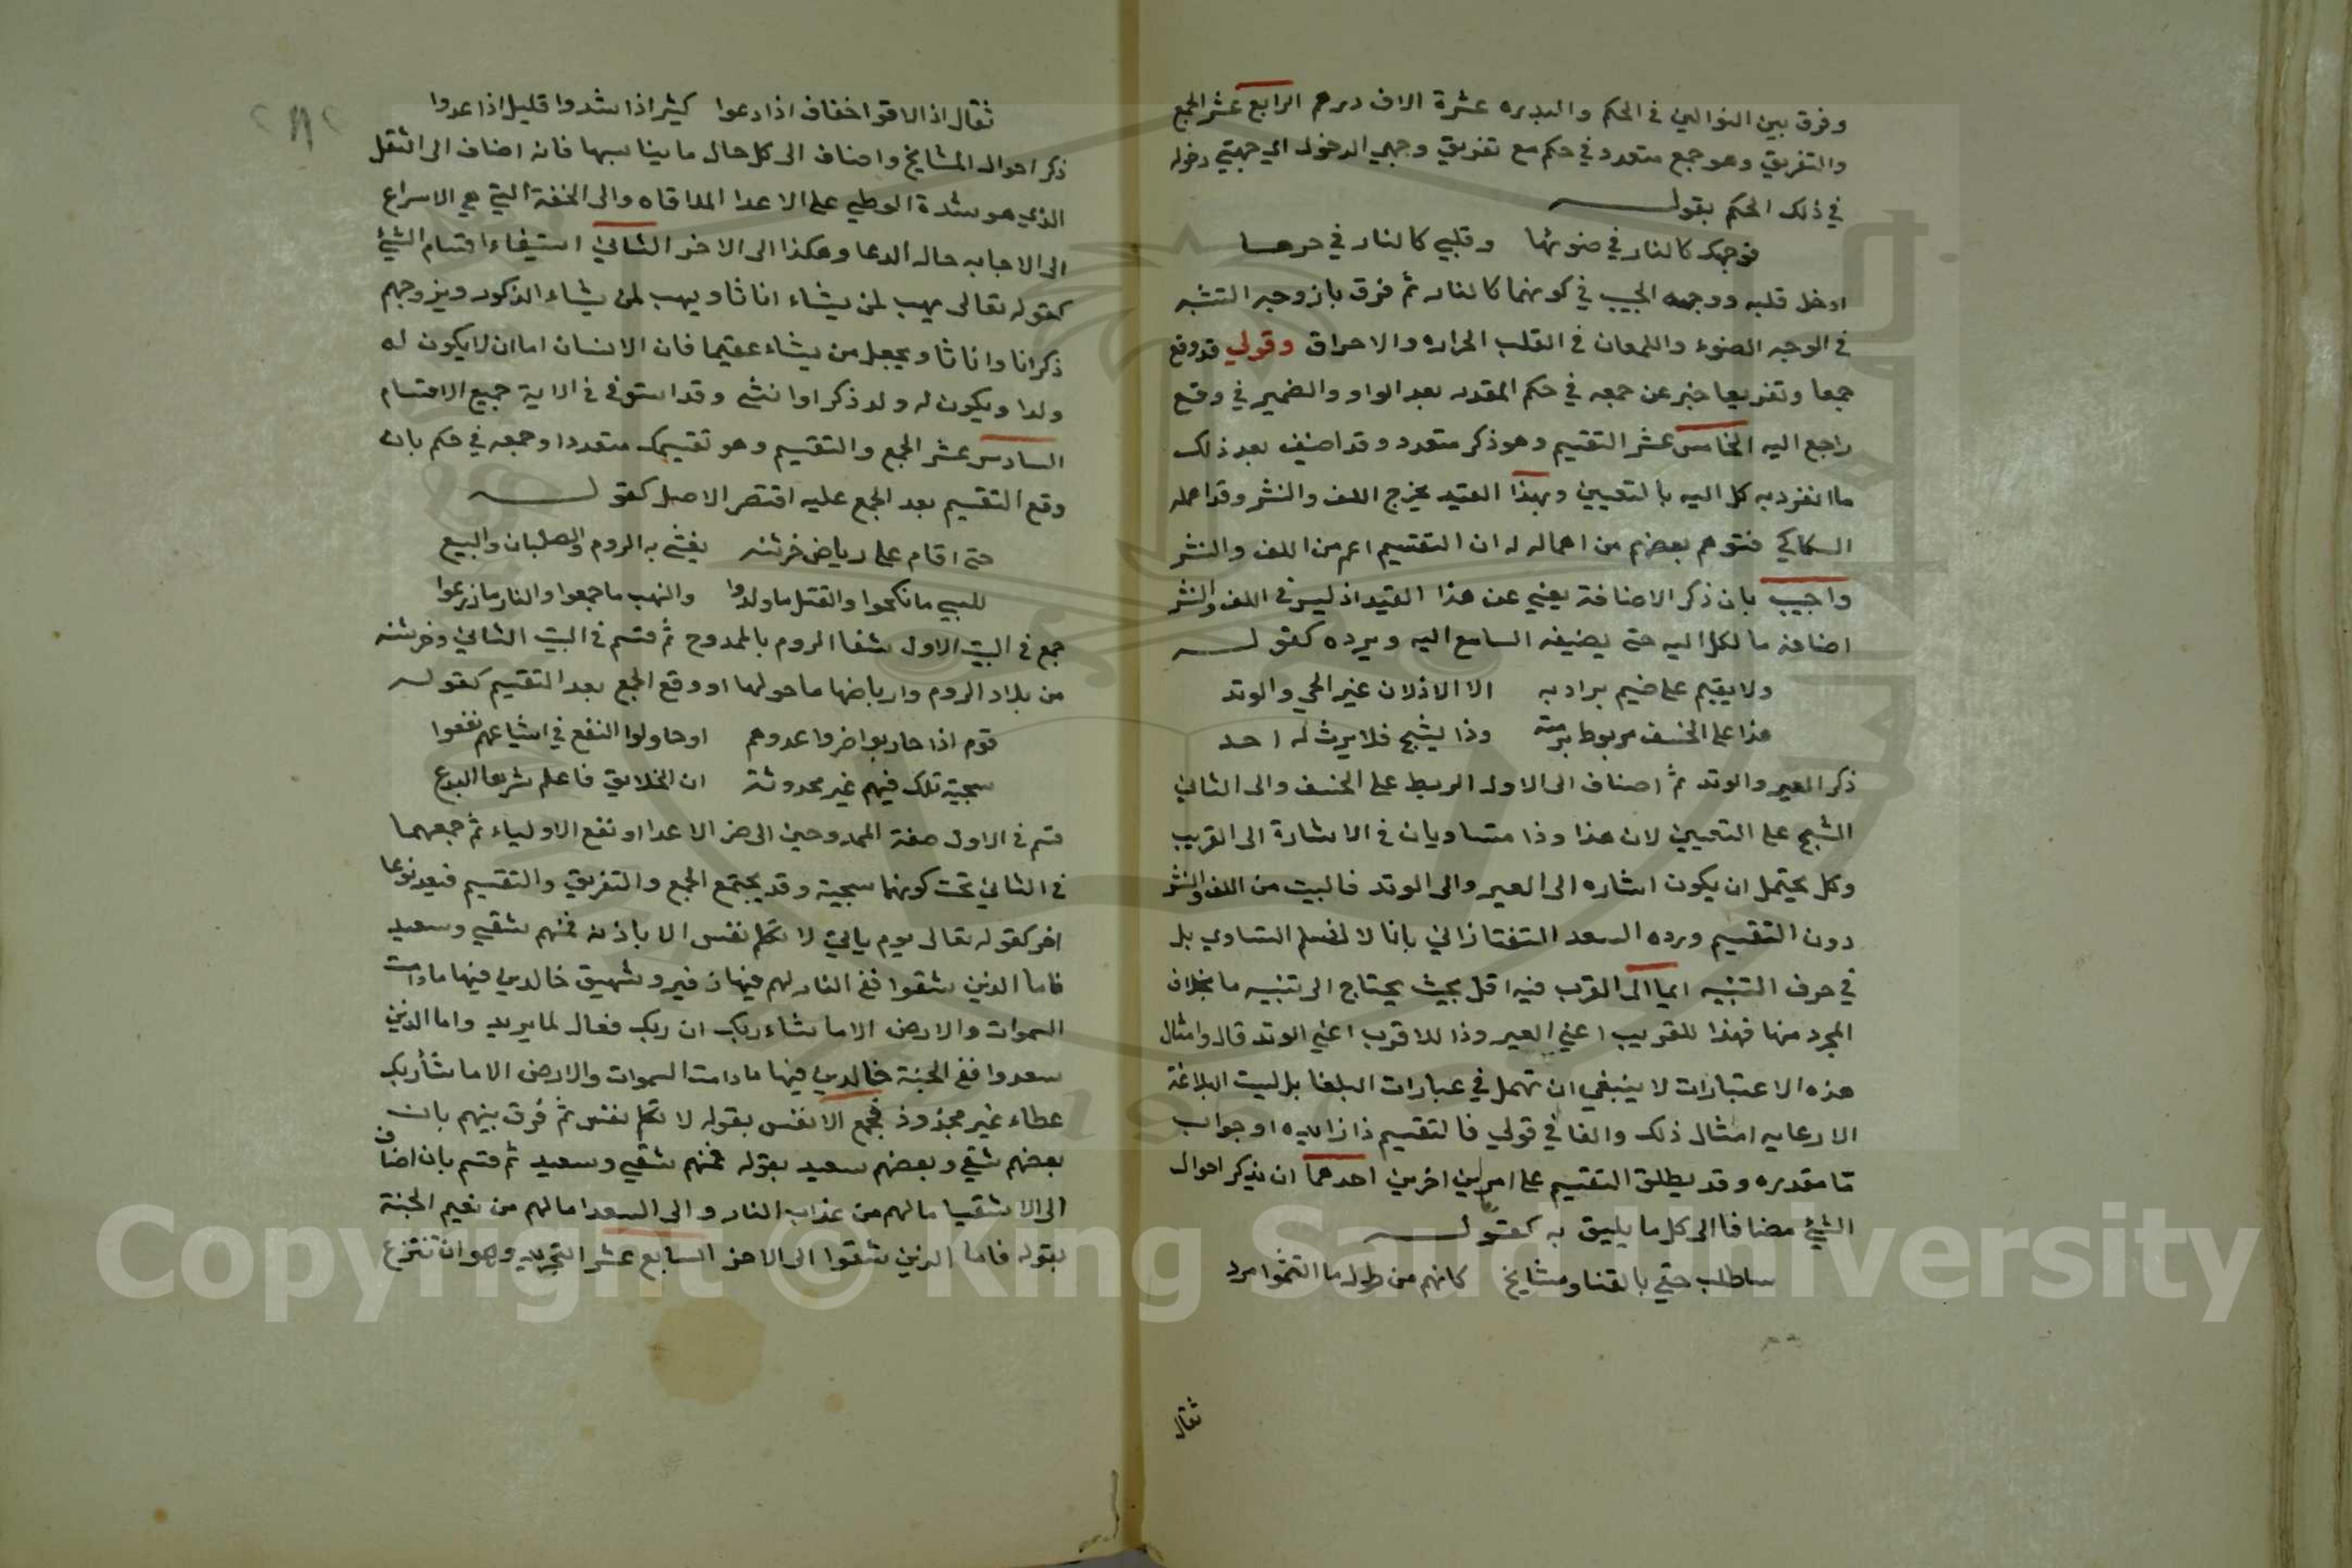 وفرق بين النوالين في الحكم والبدره عشرة الاف درهم الرابع عشر الجمع
والتفريق وهو جمع متعدد في حكم مع تفريق وجهي الدخول اي جهتي دخوله
في ذلك الحكم بقوله
فوجهك كالنار في ضوئها وقلبي كالنار في حرها
ادخل قلبه ووجهه الحبيب في كونهما كالنار ثم فرق بان وجه التشبه
في الوجه الضوء واللمعان في القلب الحراره والاحراق وقولي قد وقع
جمعا وتفريعا خبر عن جمعه في حكم المقدر بعد الواو والضمير في وقع
راجع اليه الخامس عشر التقسيم وهو ذكر متعدد وقد اضيف بعد ذلك
ما انفرد به كل اليه بالتعيين وبهذا القيد يخرج اللف والنشر وقد اهمله
السكاكي فتوهم بعضهم من اهماله له ان التقسيم اعم من اللف والنشر
واجيب بان ذكر الاضافة يغني عن هذا القيد اذ ليس في اللف والنشر
اضافة ما لكل اليه حتى يضيفه السامع اليه ويرده كقوله
ولا يقيم على ضيم يراد به الا الاذلان عير الحي والوتد
هذا على الخسف مربوط برمته وذا يشج فلا يرث له احد
ذكر العير والوتد ثم اضاف الى الاول الربط على الخسف والى الثاني
الشج على التعيين لان هذا وذا متساويان في الاشارة الى القريب
وكل يحتمل ان يكون اشاره الى العير والى الوتد فالبيت من اللف والنشر
دون التقسيم ورده السعد التفتازاني بانا لا نسلم التساوي بل
في حرف التنبيه ايما الى القرب فيه اقل بحيث يحتاج الى تنبيه ما بخلاف
المجرد منها فهذا للقريب اعني العير وذا للاقرب اعني الوتد قال وامثال
هذه الاعتبارات لا ينبغي ان تهمل في عبارات البلغا بل ليست البلاغة
الا رعايه امثال ذلك والفا في قولي فالتقسيم ذا زائده او جواب
قا مقدره وقد يطلق التقسيم على امرين اخرين احدهما ان يذكر احوال
الشئ مضافا الى كل ما يليق به كقوله
ساطلب حقي بالقنا ومشايخ كانهم من طول ما التثموا مرد
ثقال
ثقال اذا لاقوا خفاف اذا دعوا كثير اذا شدوا قليل اذا عدوا
ذكر احوال المشايخ واضاف الى كل حال ما يناسبها فانه اضاف الى الثقل
الذي هو شدة الوطي على الاعدا الملاقاه والى الخفة التي هي الاسراع
الى الاجابه حال الدعا وهكذا الى الاخر الثاني استيفاء اقسام الشئ
كقوله تعالى يهب لمن يشاء اناثا ويهب لمن يشاء الذكور ويزوجهم
ذكرانا واناثا ويجعل من يشاء عقيما فان الانسان اما ان لا يكون له
ولدا ويكون له ولد ذكر او انثى وقد استوفى في الاية جميع الاقسام
السادس عشر الجمع والتقسيم وهو تقسيمك متعددا وجمعه في حكم بان
وقع التقسيم بعد الجمع عليه اقتصر الاصل كقوله
حتى اقام على رياض خرشنه يشقى به الروم والصلبان والبيع
للسبي ما نكحوا والقتل ما ولدوا والنهب ما جمعوا والنار ما زرعوا
جمع في البيت الاول شفا الروم بالممدوح ثم قسم في البيت الثاني وخرشنه
من بلاد الروم وارباضها ما حولها او وقع الجمع بعد التقسيم كقوله
قوم اذا حاربوا ضروا عدوهم او حاولوا النفع في اشياعهم نفعوا
سجية تلك فيهم غير محدوثة ان الخلايق فاعلم شرها البدع
قسم في الاول صفة الممدوحين الى ضر الاعدا او نفع الاولياء ثم جمعهما
في الثاني تحت كونهما سجية وقد يجتمع الجمع والتفريق والتقسيم فيعد نوعا
اخر كقوله تعالى يوم ياتي لا تكلم نفس الا باذنه فمنهم شقي وسعيد
فاما الذين شقوا ففي النار لهم فيها زفير وشهيق خالدين فيها ما دامت
السموات والارض الا ما شاء ربك ان ربك فعال لما يريد واما الذين
سعدوا ففي الجنة خالدين فيها ما دامت السموات والارض الا ما شأ ربك
عطاء غير مجذوذ فجمع الانفس بقوله لا تكلم نفس ثم فرق بينهم بان
بعضهم شقي وبعضهم سعيد بقوله فمنهم شقي وسعيد ثم قسم بان اضاف
الى الاشقيا ما لهم من عذاب النار والى السعدا ما لهم من نعيم الجنة
بقوله فاما الذين شقوا الى الاخر السابع عشر التجريد وهو ان تنتزع
Copyright © King Saud University